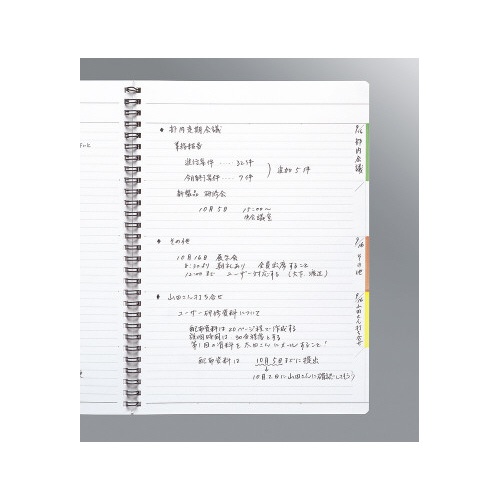 ◆ 部内定期会議
業務報告
進行案件 …… 32件
今月新行案件 …… 7件
追加5件
新製品 研修会
10月5日 15:00〜
中会議室
◆ その他
10月16日 展示会
8:30より 朝礼あり 全員出席すること
12:00まで ユーザー対応する（大下、渡辺）
◆ 山田さん打ち合せ
ユーザー研修資料について
配布資料は20ページ程で作成する
説明時間は 30分程度とする
第1回の資料を太田さんにメールすること!
配布資料は 10月5日までに提出
↓
10月2日に山田さんに確認してもらう
部内会議
その他
山田さん打ち合せ